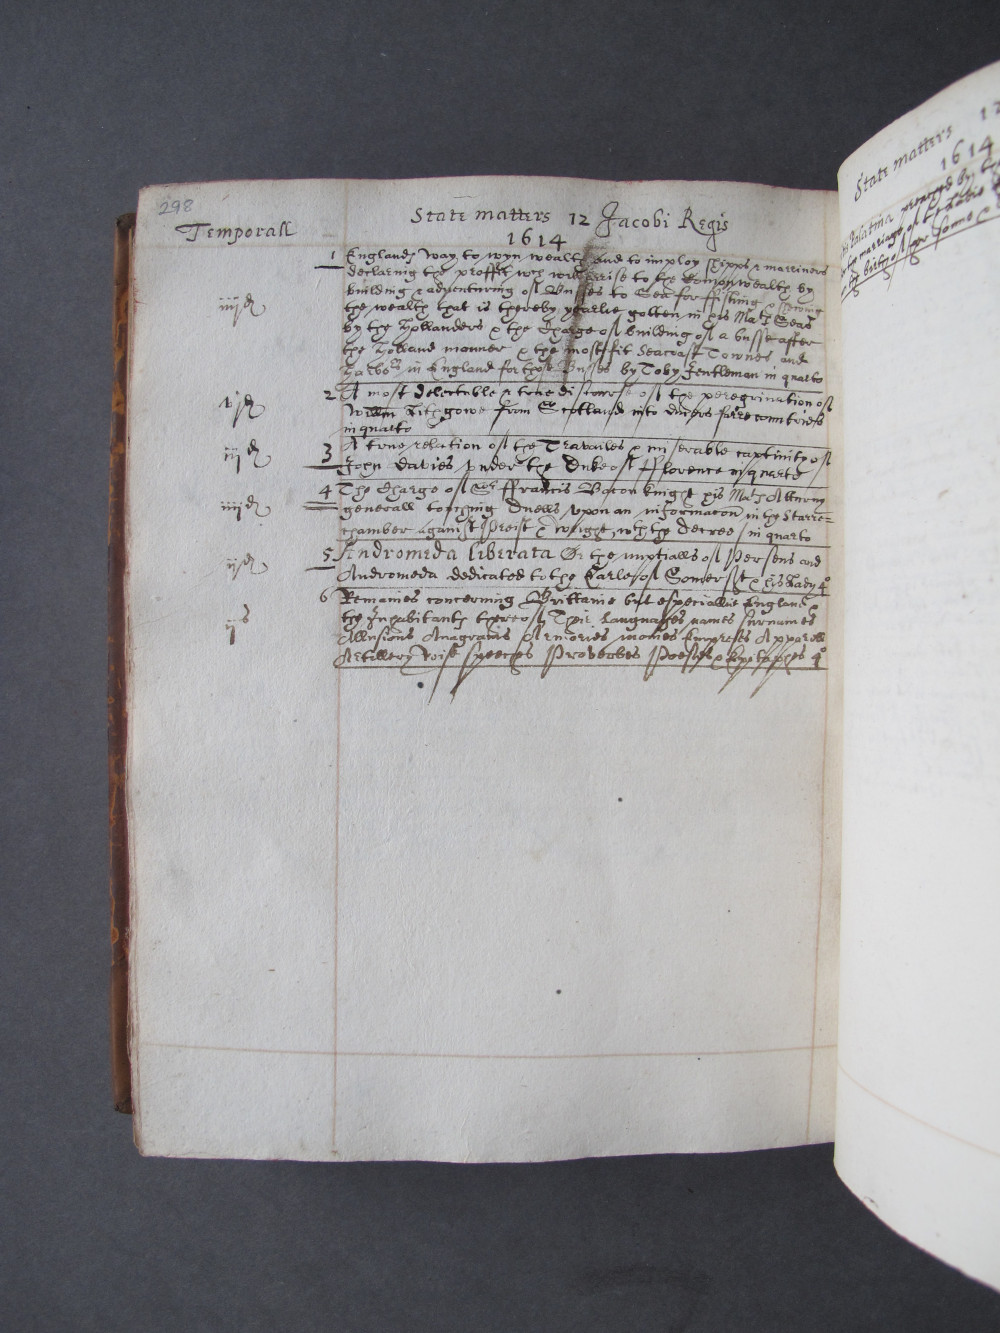 298
State matters 12 Jacobi Regis
Temporall
1614
1 Englands way to wyn wealth and to imploy shipps & marriners
declaring the proffitt wch will arise to the Comonwealth by
building & adventuring of Busses to Sea for ffishing
iiijd the wealth that is thereby yearlie gotten in his Mats Seas
by the Hollanders & the Charge of building of a busse after
the Holland manner & the most fit Seacoast Townes and
in England for those Busses by Toby Gentleman in quarto
vjd 2 A most delectable & true discourse of the peregrination of
Willm Lithgowe from Scotland into divers farre countries
in quarto
iijd 3 A true relation of the Travailes & miserable captivity of
John Davies under the Duke of fflorence in quarto
4 The Charge of Sr ffrancis Bacon knight his Mats Atturny
iiijd generall touching Duells uppon an informacon in the Starre=
chamber against Preist & Wright wth the decree in quarto
iijd 5 Andromeda liberata Or the nuptialls of Perseus and
Andromeda dedicated to the Earle of Somerset & his Lady 4o
6 Remaines concerning Brittaine but especiallie England &
ijs the Inhabitants thereof Their Languages names surnames
Allusions Anagrams Armories monies Empreses Apparell
Artillery Wise speeches Proverbes Poesies & Epitaphes 4o
State matters 12
1614
Palatine
the marriage of the Ladie